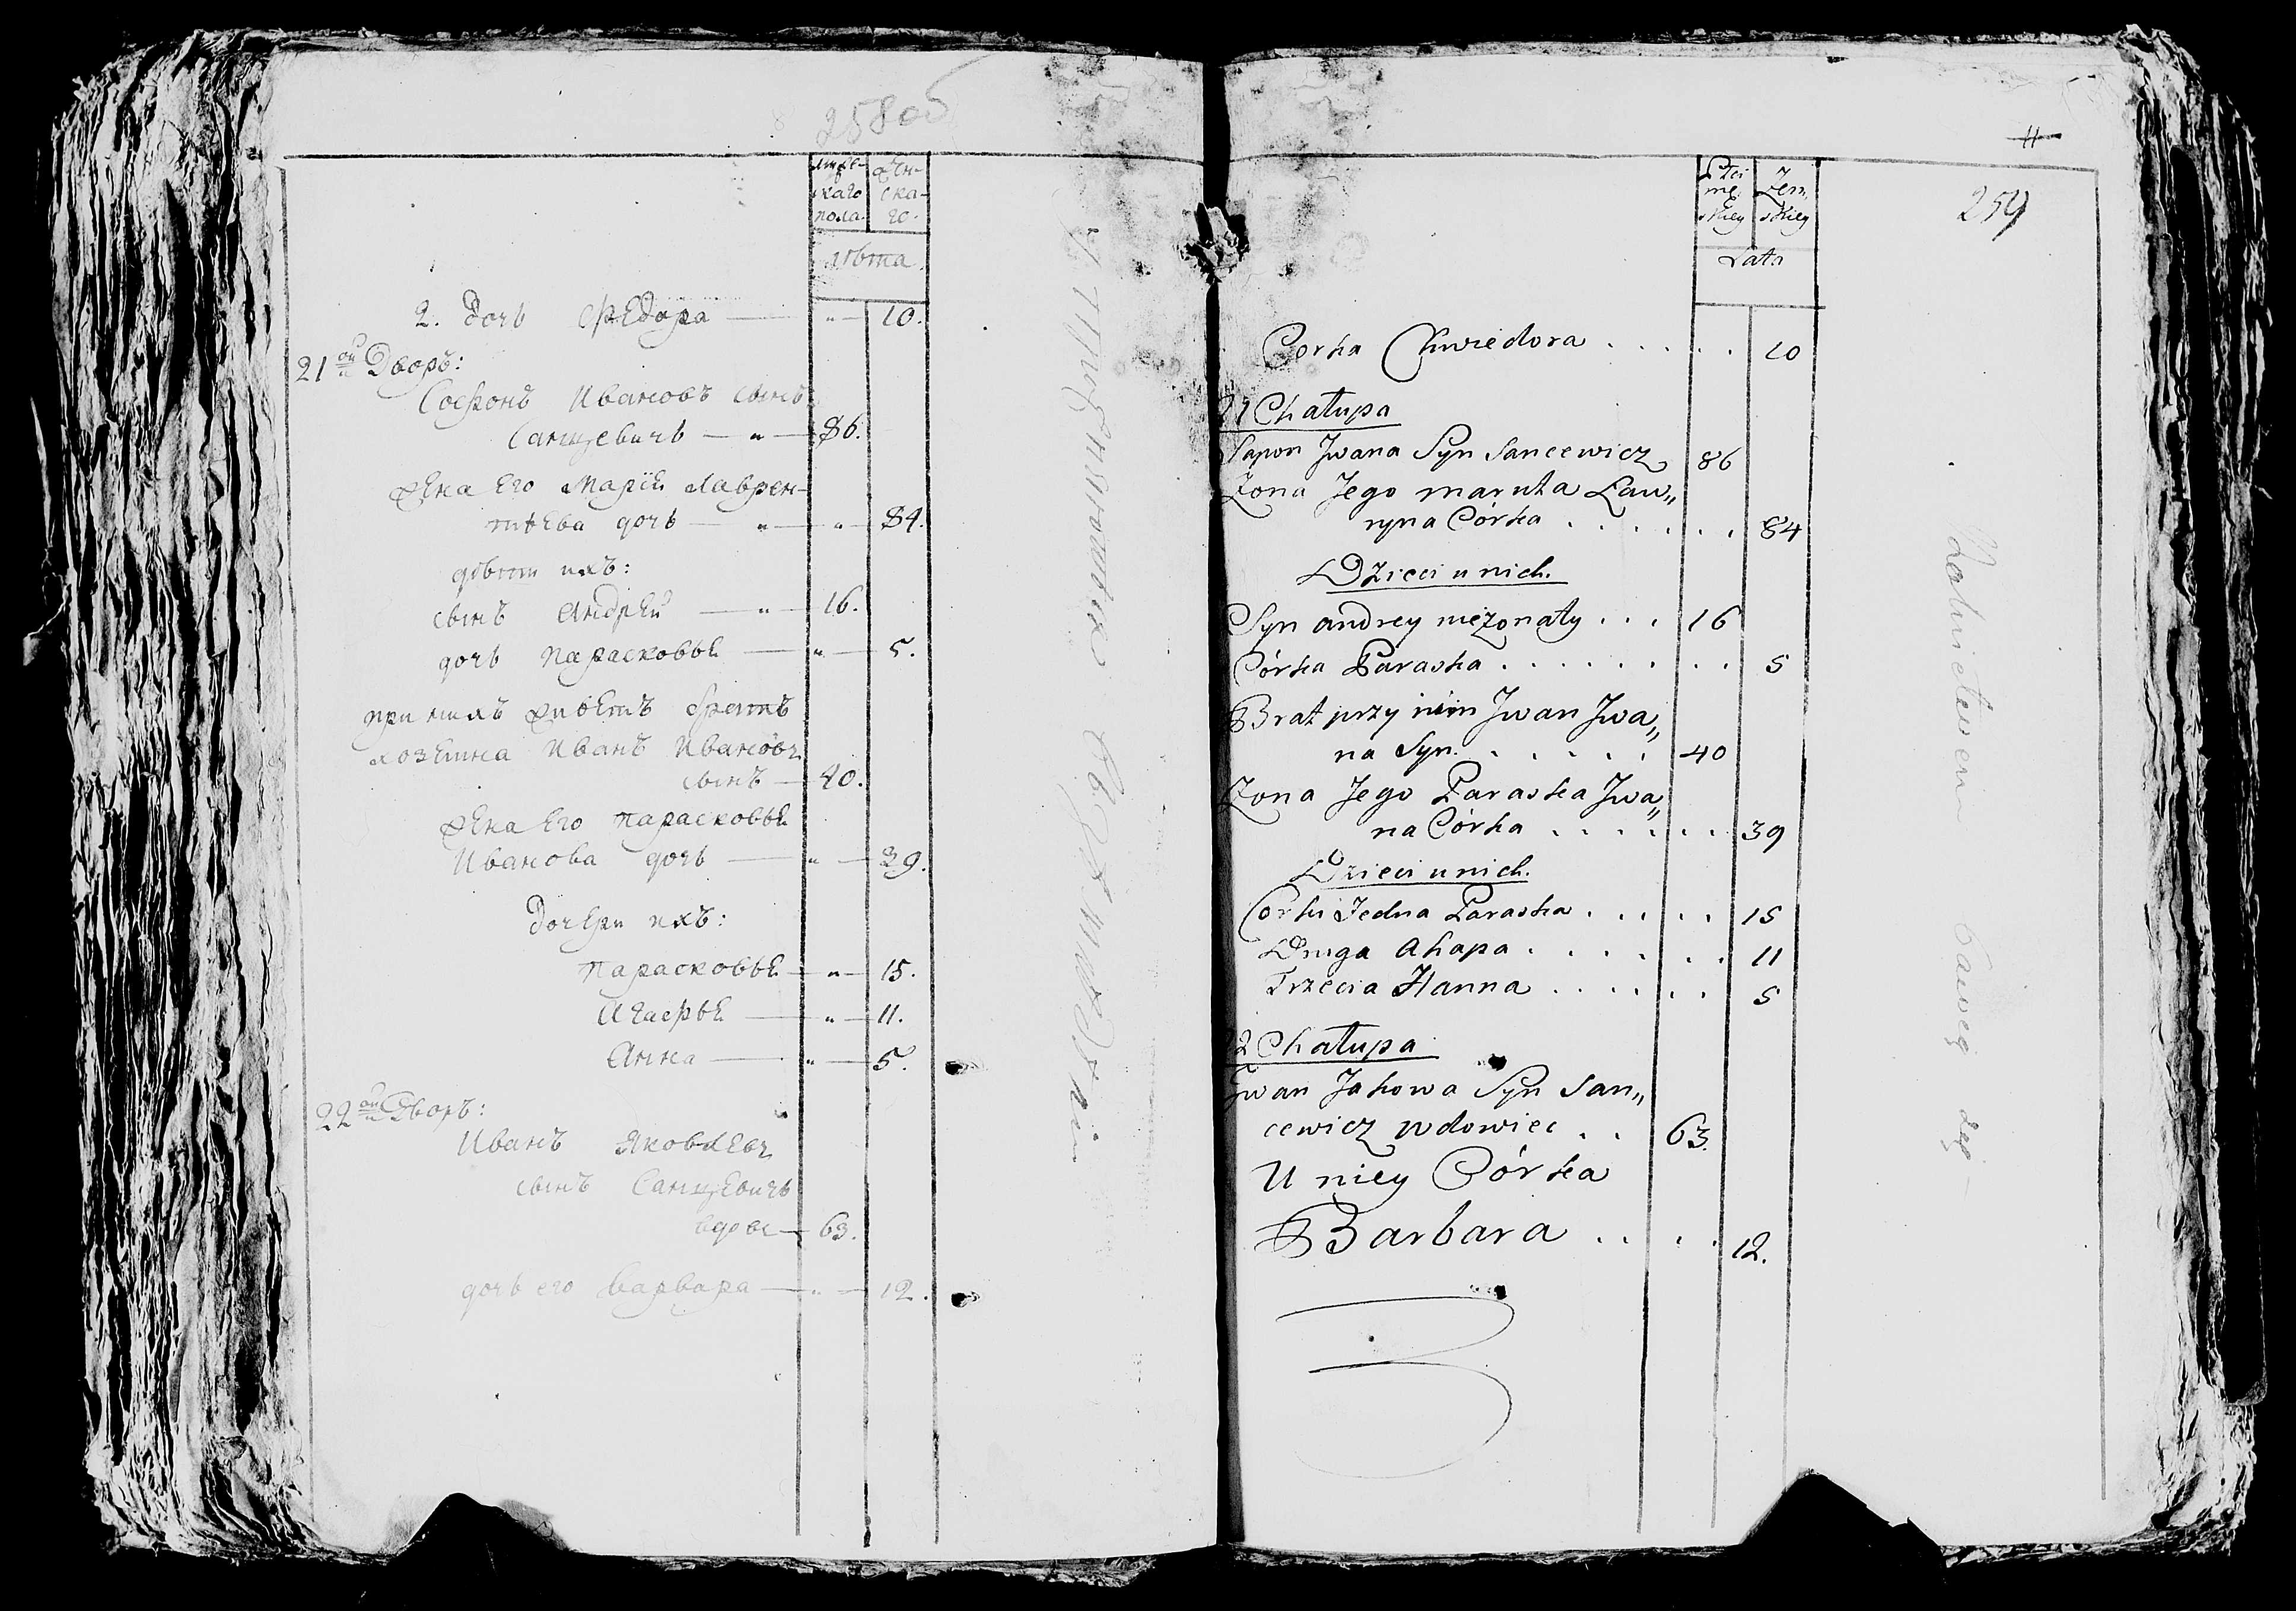 258 об
мужскаго пола
женскаго
лѣта
2. Дочь Федора — " — 10.
21ой Дворъ:
Софонъ Ивановъ сынъ
Санцевичъ — " — 86.
жена Его Марiя Лаврен-
тѣева дочь — " — " — 84.
дѣти ихъ:
сынъ Андрей — " — 16.
дочь Парасковья — " — 5.
при нихъ живетъ братъ
хозяина Иванъ Ивановъ
сынъ — 40.
жена Его Парасковья
Иванова дочь — " — 39.
Дочери ихъ:
Парасковья — " — 15.
Агафья — " — 11.
Анна — " — 5.
22ой Дворъ:
Иванъ Яковлевъ
сынъ Санцевичъ
вдовъ — 63.
дочь его Варвара — " — 12.
11
259
Płci
mę
skiey
Żeń
skiey
Lata
Corka Chwiedora . . . . . 10
21 Chałupa
Sapon Jwana Syn Sancewicz 86
Zona Jego maruta Ław„
ryna Córka . . . . . . . 84
Dzieci u nich.
Syn andrey nieżonaty . . . 16
Córka Paraska . . . . . . . . 5
Brat przy nim Jwan Jwa„
na Syn . . . . . . 40
Zona Jego Paraska Jwa„
na Córka . . . . . . 39
Dzieci u nich.
Corki Jedna Paraska . . . . . 15
Druga Ahapa . . . . . . . 11
Trzecia Hanna . . . . . . 5
22 Chałupa
Jwan Jakowa Syn San„
cewicz wdowiec . . 63.
U niey Córka
Barbara . . . . 12.